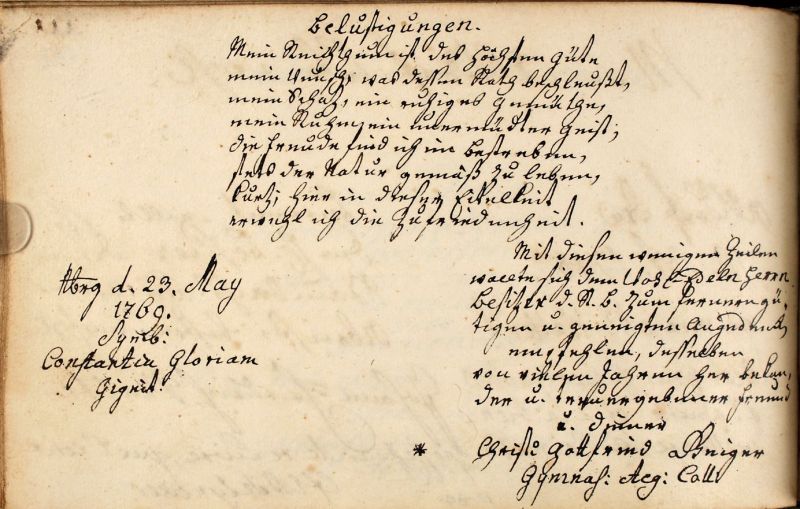 Belustigungen.
Mein Reichthum ist des Höchsten Güte
mein Wunsch, was dessen Rath beschleußt,
mein Schatz, ein ruhiges Gemüthe,
mein Ruhm, ein unermüdter Geist;
die Freude find ich im Bestreben,
stets der Natur gemäß zu leben,
kurtz; hier in dieser Eitelkeit
erwehl ich die Zufriedenheit.
Mit diesen wenigen Zeilen
wollte sich dem Herrn
Besitzer d. St. B. zum fernern gü-
tigen u. geneigten Angedenken
empfehlen, desselben
von vielen Jahren her bekan-
der u. treuergebener Freund
u. Diener
Christ: Gottfried
Gymnas: Aeg: Coll:
Nbrg d. 23. May
1769.
Symb:
Constantia Gloriam
Gignit.
*